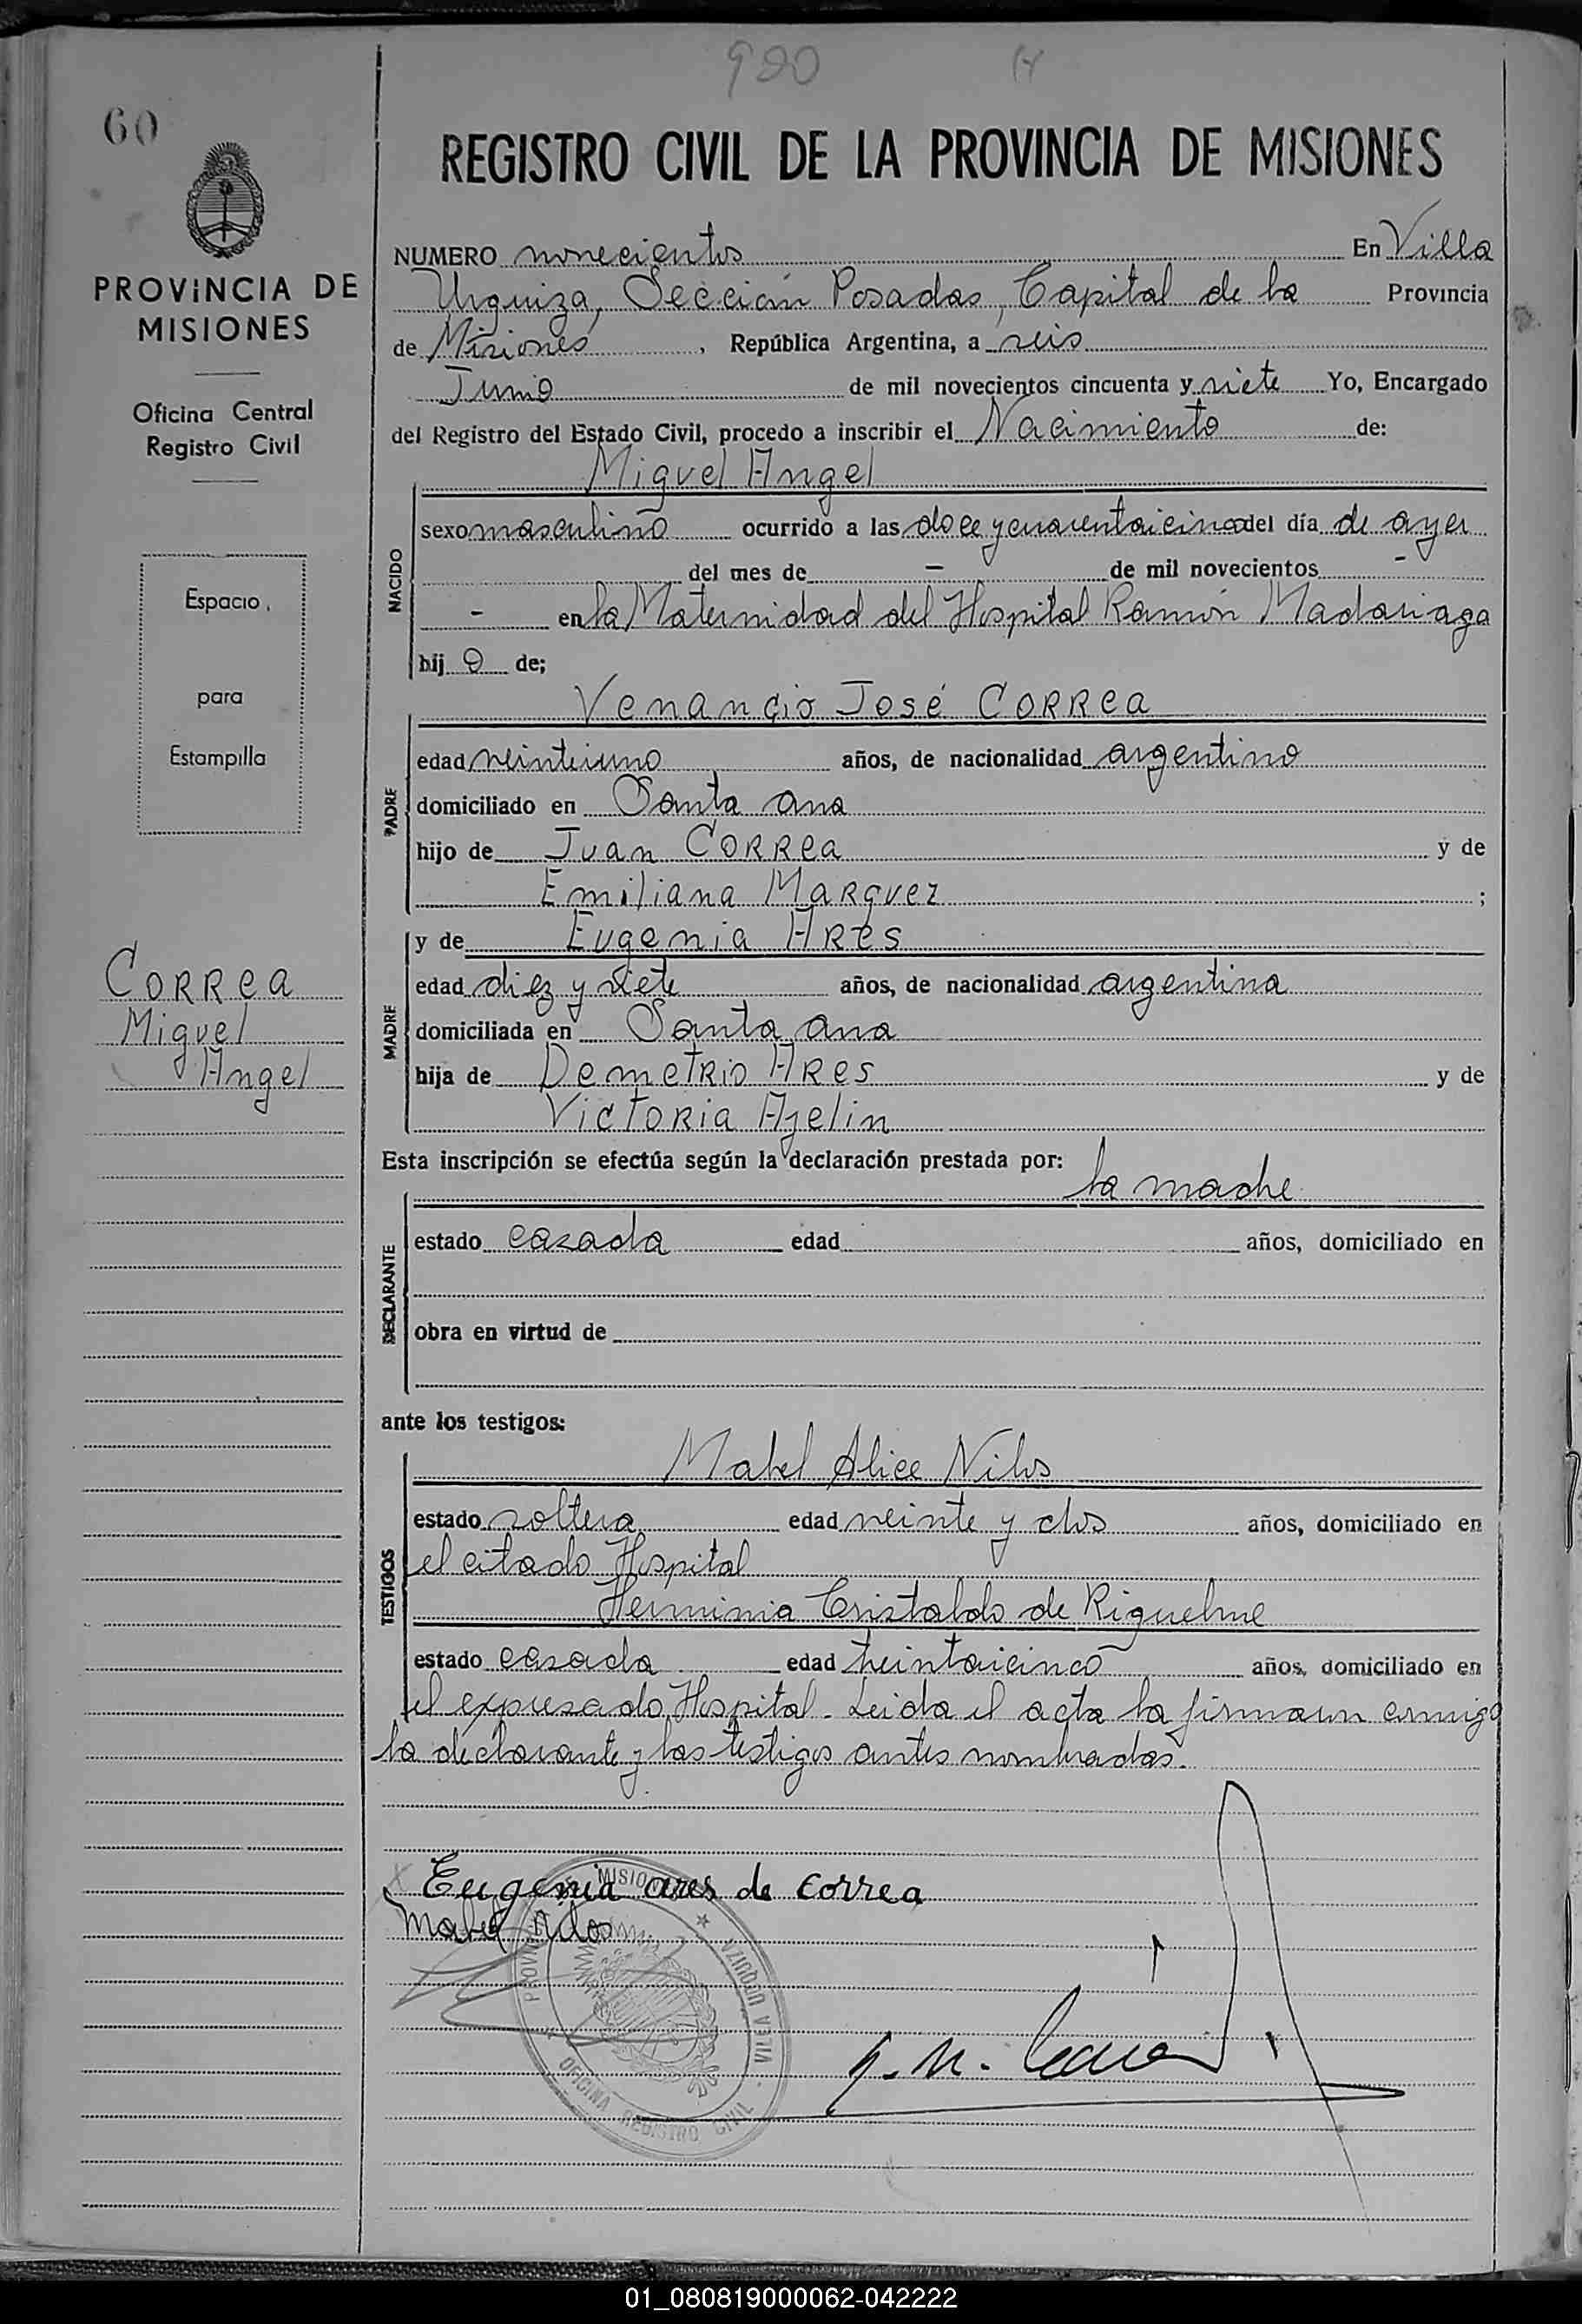 900
60
REGISTRO CIVIL DE LA PROVINCIA DE MISIONES
PROVINCIA DE
MISIONES
Oficina Central
Registro Civil
Espacio
para
Estampilla
Correa
Miguel
Angel
NUMERO novecientos En Villa
Urquiza, Sección Posadas, Capital de la Provincia
de Misiones, República Argentina, a seis
Junio de mil novecientos cincuenta y siete Yo, Encargado
del Registro del Estado Civil, procedo a inscribir el Nacimiento de:
Miguel Angel
NACIDO
sexo masculino ocurrido a las doce y cuarentaicinco del día de ayer
del mes de - de mil novecientos -
- en la Maternidad del Hospital Ramón Madariaga
hij o de;
Venancio José Correa
PADRE
edad veintiuno años, de nacionalidad argentino
domiciliado en Santa Ana
hijo de Juan Correa y de
Emiliana Marquez ;
y de Eugenia Ares
MADRE
edad diez y siete años, de nacionalidad argentina
domiciliada en Santa Ana
hija de Demetrio Ares y de
Victoria Ajelin
Esta inscripción se efectúa según la declaración prestada por:
la madre
DECLARANTE
estado casada edad años, domiciliado en
obra en virtud de
ante los testigos:
Mabel Alice Nilos
TESTIGOS
estado soltera edad veinte y dos años, domiciliado en
el citado Hospital
Herminia Cristaldo de Riquelme
estado casada edad treintaicinco años, domiciliado en
el expresado Hospital. Leida el acta la firman conmigo
la declarante y las testigos antes nombradas.
Eugenia ares de Correa
Mabel Nilos
PROVINCIA MISIONES
VILLA URQUIZA
OFICINA REGISTRO CIVIL
01_080819000062-042222